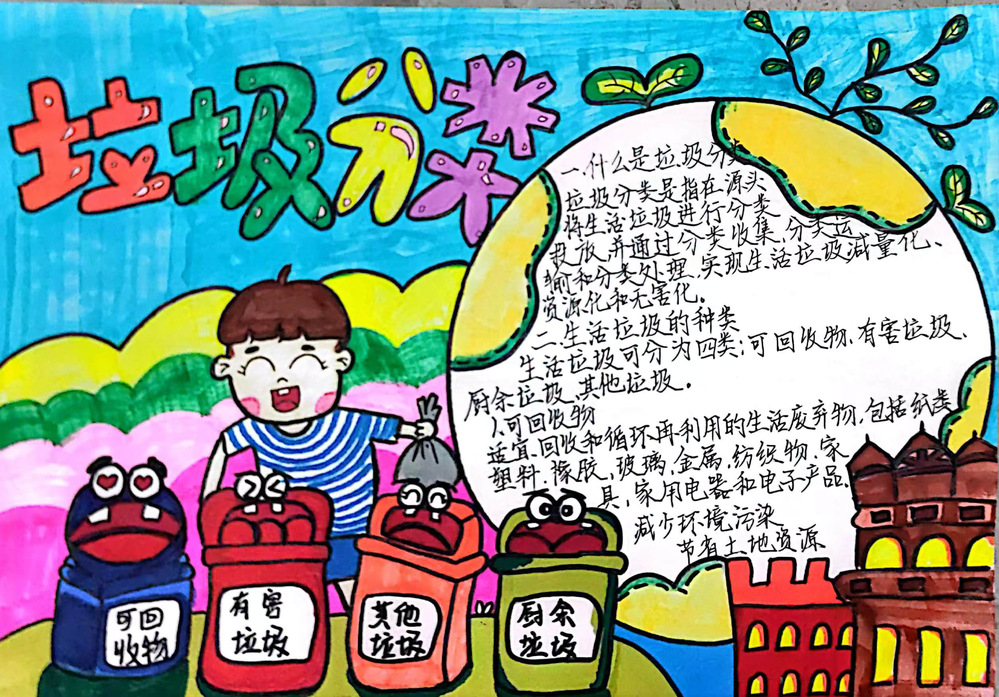 垃圾分类
一.什么是垃圾分类
垃圾分类是指在源头
将生活垃圾进行分类
投放,并通过分类收集,分类运
输和分类处理.实现生活垃圾减量化、
资源化和无害化。
二.生活垃圾的种类
生活垃圾可分为四类:可回收物.有害垃圾.
厨余垃圾.其他垃圾。
1.可回收物
适宜回收和循环再利用的生活废弃物,包括纸类
塑料.橡胶,玻璃,金属,纺织物.家
具,家用电器和电子产品.
减少环境污染
节省土地资源
可回
收物
有害
垃圾
其他
垃圾
厨余
垃圾